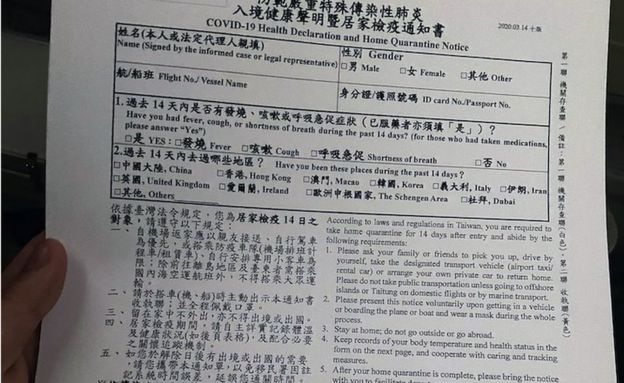 防範嚴重特殊傳染性肺炎
入境健康聲明暨居家檢疫通知書
COVID-19 Health Declaration and Home Quarantine Notice
2020.03.14 十版
姓名(本人或法定代理人親填)
Name (Signed by the informed case or legal representative)
性別 Gender
□男 Male □女 Female □其他 Other
航/船班 Flight No./ Vessel Name
身分證/護照號碼 ID card No./Passport No.
1.過去14天內是否有發燒、咳嗽或呼吸急促症狀(已服藥者亦須填「是」)?
Have you had fever, cough, or shortness of breath during the past 14 days? (for those who had taken medications,
please answer “Yes”)
□是 YES:□發燒 Fever □咳嗽 Cough □呼吸急促 Shortness of breath □否 No
2.過去14天內去過哪些地區? Have you been these places during the past 14 days?
□中國大陸, China □香港, Hong Kong □澳門, Macao □韓國, Korea □義大利, Italy □伊朗, Iran
□英國, United Kingdom □愛爾蘭, Ireland □歐洲申根國家, The Schengen Area □杜拜, Dubai
□其他, Others
依據臺灣法令規定,您為居家檢疫14日之
對象,請遵守以下規定:
一、自機場返家應以親友接送、自行駕車
為優先,或搭乘防疫車隊(機場排班計
程車/租賃車)、自行安排專用小客車為
限;除前往離島地區及臺東者需搭乘
國內海空運航班外,不得搭乘大眾運
輸。
二、請於搭車(機、船)時主動出示本通知書
收執聯;並全程佩戴口罩。
三、留在家中不外出,亦不得出境或出國。
四、居家檢疫期間,請自主詳實記錄體溫
及健康狀況(如後頁表格),及配合必要
之關懷追蹤機制。
五、如您於解除日後有出境或出國的需要
時,請您攜帶本通知單,以免移民署因註
記系統時間誤差,延誤您通關時間。
According to laws and regulations in Taiwan, you are required to
take home quarantine for 14 days after entry and abide by the
following requirements:
1. Please ask your family or friends to pick you up, drive by
yourself, take the designated transport vehicle (airport taxi/
rental car) or arrange your own private car to return home.
Please do not take public transportation unless going to offshore
islands or Taitung on domestic flights or by marine transport.
2. Please present this notice voluntarily upon getting in a vehicle
or boarding the plane or boat and wear a mask during the whole
process.
3. Stay at home; do not go outside or go abroad.
4. Keep records of your body temperature and health status in the
form on the next page, and cooperate with caring and tracking
measures.
5. After your home quarantine is complete, please bring the notice
第一聯 機關存查聯